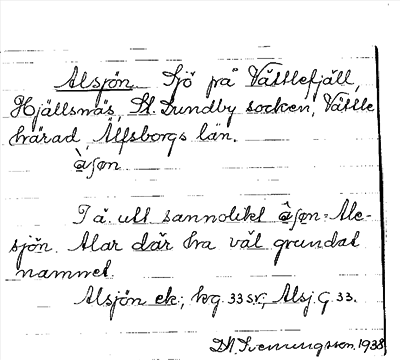 Alsjön. Sjö på Vättlefjäll,
Hjällsnäs, St. Lundby socken, Vättle
härad, Älfsborgs län.
àʃøn
I ä. utt sannolikt âʃøn: Ale-
sjön. Alar där ha väl grundat
namnet.
Alsjön ek; kg. 33 sv; Alsj. G. 33.
D.A. Svenungsson. 1938